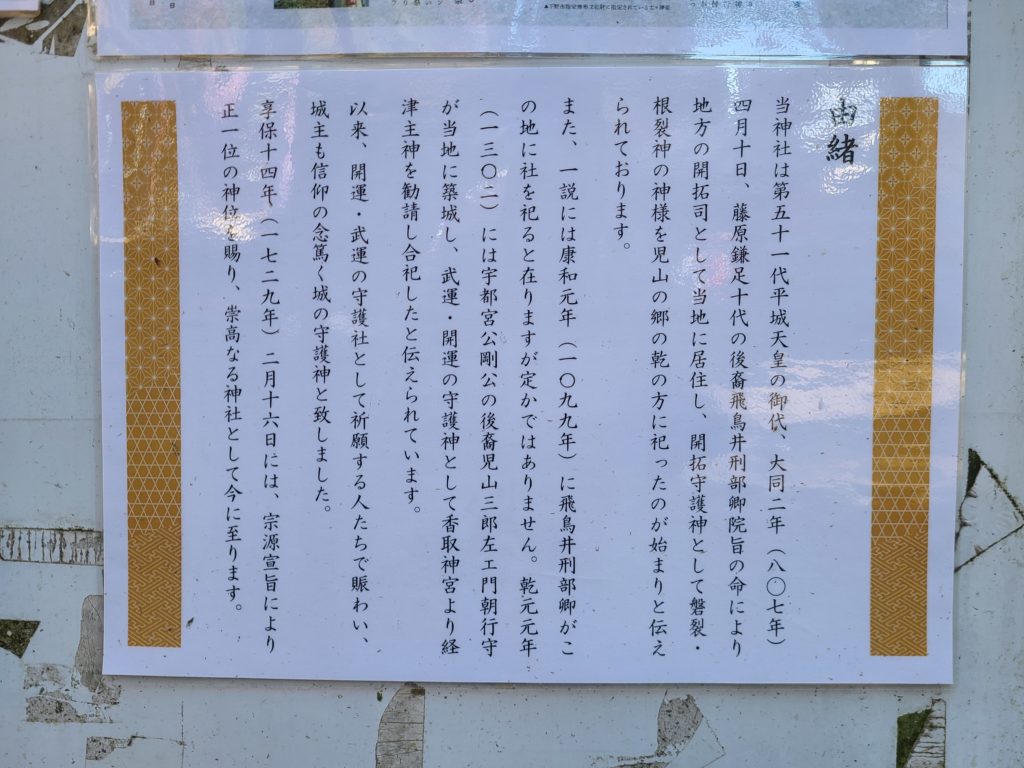 ▲下野市指定有形文化財に指定されている七ッ神社
由緒
当神社は第五十一代平城天皇の御代、大同二年（八〇七年）
四月十日、藤原鎌足十代の後裔飛鳥井刑部卿院旨の命により
地方の開拓司として当地に居住し、開拓守護神として磐裂・
根裂神の神様を児山の郷の乾の方に祀ったのが始まりと伝え
られております。
また、一説には康和元年（一〇九九年）に飛鳥井刑部卿がこ
の地に社を祀ると在りますが定かではありません。乾元元年
（一三〇二）には宇都宮公剛公の後裔児山三郎左エ門朝行守
が当地に築城し、武運・開運の守護神として香取神宮より経
津主神を勧請し合祀したと伝えられています。
以来、開運・武運の守護社として祈願する人たちで賑わい、
城主も信仰の念篤く城の守護神と致しました。
享保十四年（一七二九年）二月十六日には、宗源宣旨により
正一位の神位を賜り、崇高なる神社として今に至ります。